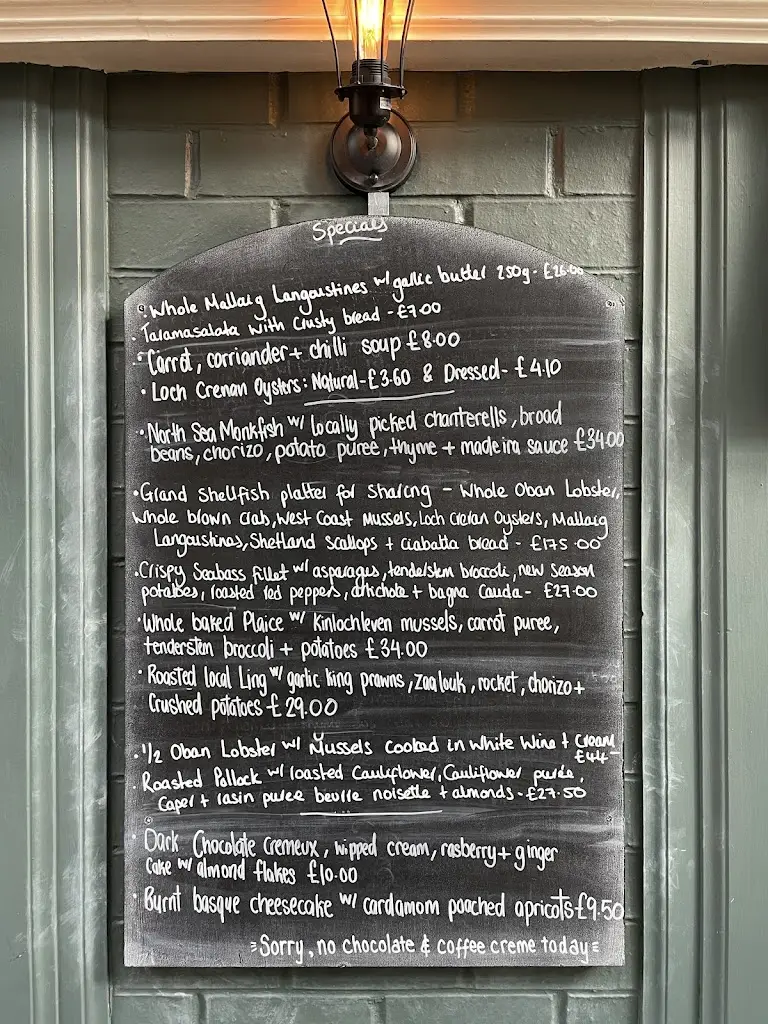 Specials
• Whole Mallaig Langoustines w/ garlic butter 250g - £26.00
• Taramasalata with Crusty bread - £7.00
• Carrot, corriander + chilli soup £8.00
• Loch Crenan Oysters: Natural - £3.60 & Dressed - £4.10
• North Sea Monkfish w/ locally picked chanterells, broad
beans, chorizo, potato puree, thyme + madeira sauce £34.00
• Grand Shellfish platter for Sharing - Whole Oban Lobster,
Whole brown crab, West Coast Mussels, Loch Creran Oysters, Mallaig
Langoustines, Shetland Scallops + ciabatta bread - £175.00
• Crispy Seabass fillet w/ asparagus, tenderstem broccoli, new season
potatoes, roasted red peppers, artichoke + bagna cauda - £27.00
• Whole baked Plaice w/ Kinlochleven mussels, carrot puree,
tenderstem broccoli + potatoes £34.00
• Roasted local Ling w/ garlic king prawns, zaalouk, rocket, chorizo +
Crushed potatoes - £29.00
• 1/2 Oban Lobster w/ Mussels Cooked in White Wine + Cream
£44-
• Roasted Pollock w/ roasted Cauliflower, Cauliflower purée,
Caper + rasin puree beurre noisette + almonds - £27.50
• Dark Chocolate Cremeux, wipped cream, rasberry + ginger
Cake w/ almond flakes £10.00
• Burnt basque cheesecake w/ cardamom poached apricots £9.50
= Sorry, no chocolate & coffee creme today =